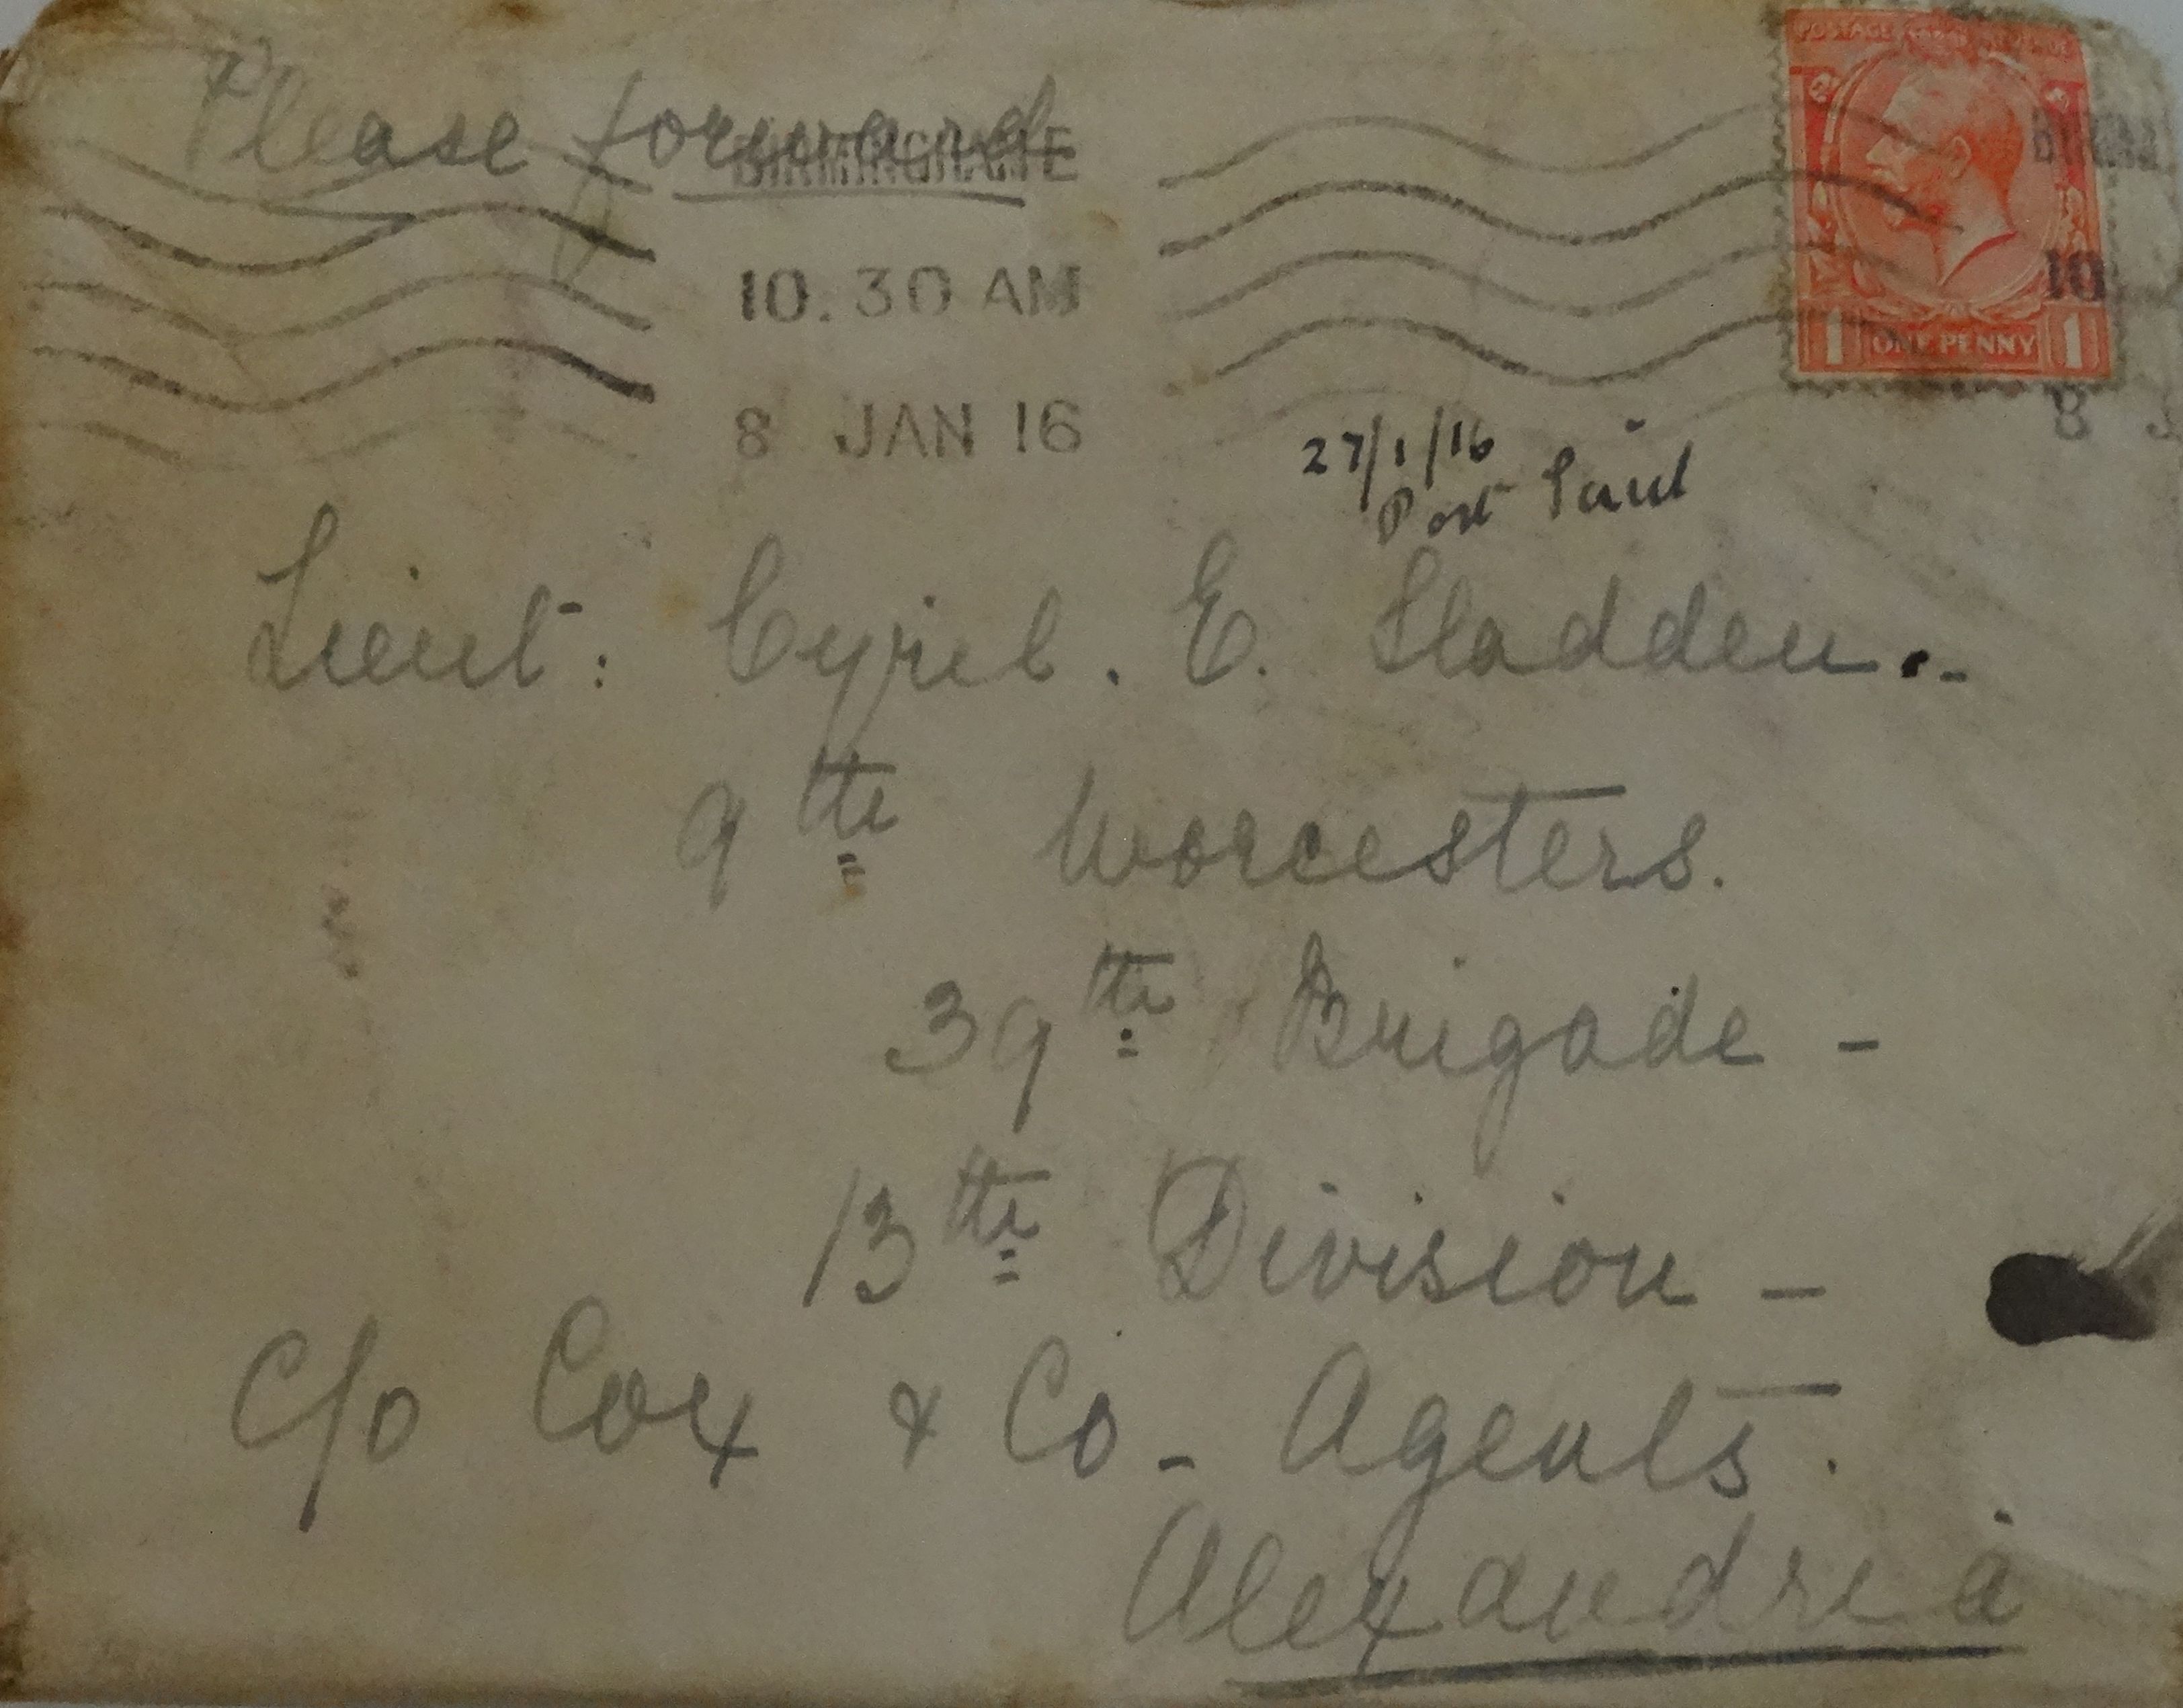 Please forward
BIRMINGHAM
10.30 AM
8 JAN 16
POSTAGE REVENUE
10
1 ONE PENNY 1
8
27/1/16
Port Said
Lieut: Cyril. E. Sladden.-
9th Worcesters.
39th Brigade -
13th Division -
C/o Cox & Co - Agents.
Alexandria